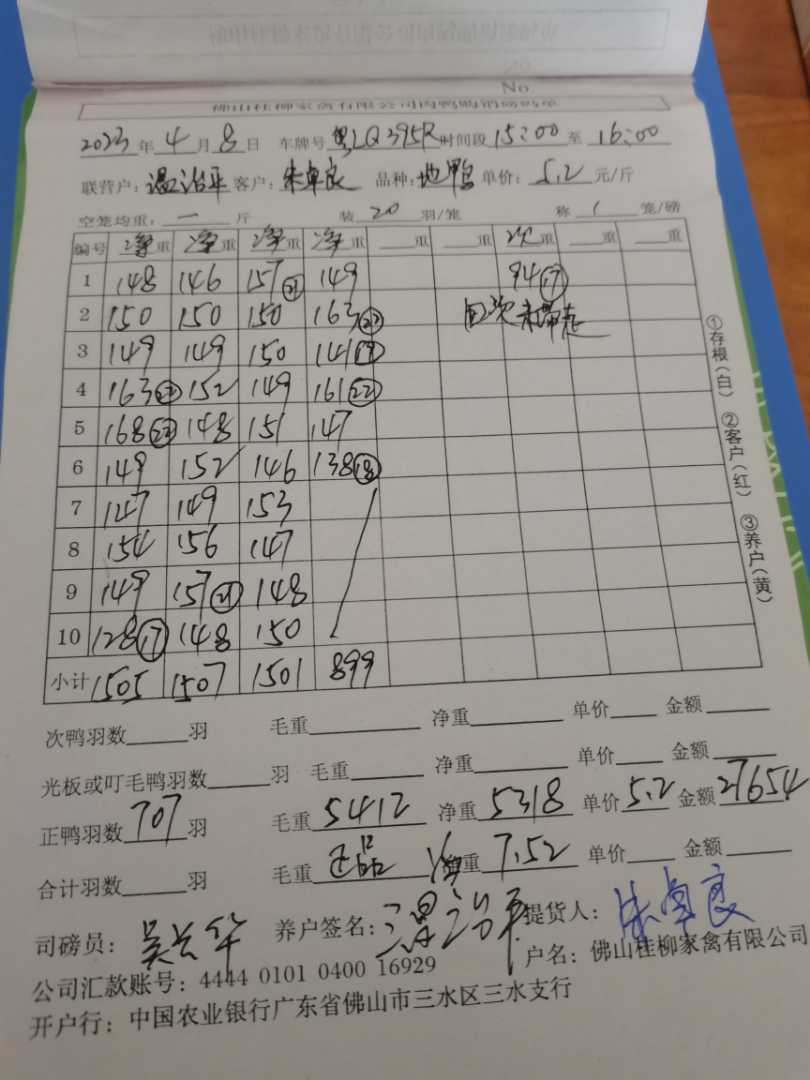 No.
佛山桂柳家禽有限公司肉鸭购销磅码单
2023年4月8日 车牌号粤LQ395R时间段15:00至16:00
联营户:温治平 客户:朱卓良 品种:地鸭 单价:5.2元/斤
空笼均重:一斤 装20羽/笼 称1笼/磅
编号 净重 净重 净重 净重 重 重 次重 重 重
1 148 146 157(21) 149 94(17)
2 150 150 150 163(22) 回次未带走
3 149 149 150 141(19)
4 163(22) 152 149 161(22)
5 168(23) 148 151 147
6 149 152 146 138(18)
7 147 149 153
8 154 156 147
9 149 157(21) 148
10 128(17) 148 150
小计 1505 1507 1501 899
①存根(白) ②客户(红) ③养户(黄)
次鸭羽数 羽 毛重 净重 单价 金额
光板或叮毛鸭羽数 羽 毛重 净重 单价 金额
正鸭羽数707羽 毛重5412 净重5318 单价5.2 金额27654
合计羽数 羽 毛重正品 重7.52 单价 金额
司磅员:吴兴华 养户签名:温治平 提货人:朱卓良
公司汇款账号:4444 0101 0400 16929 户名:佛山桂柳家禽有限公司
开户行:中国农业银行广东省佛山市三水区三水支行